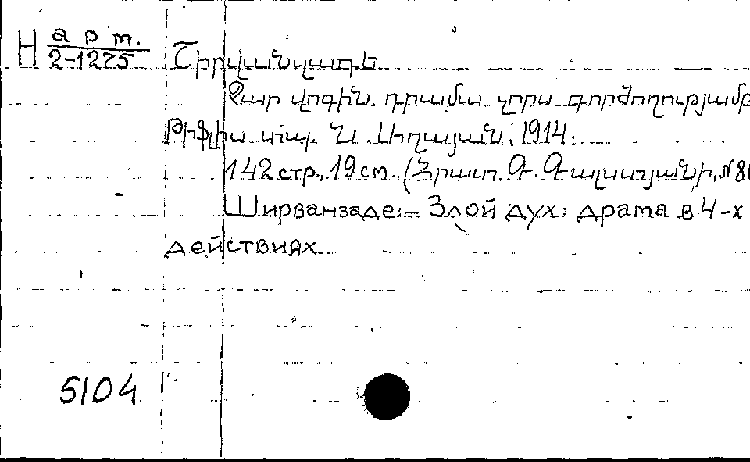 Н арт.
2-1275
Շիրվանզադե
Չար ոգին. դրամա չորս գործողությամբ
Թիֆլիս տպ. Ն. Աղանյան, 1914.
142 стр., 19 см. (Հրատ. Գ. Գալստյանի, №
Ширванзаде:- Злой дух: драма в 4-х
действиях
5104